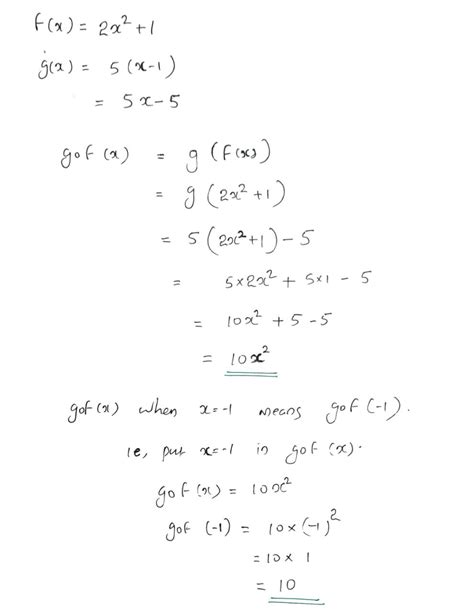 f(x) = 2x² + 1
g(x) = 5 (x-1)
= 5x - 5
gof (x) = g (f(x))
= g (2x² + 1)
= 5 (2x² + 1) - 5
= 5×2x² + 5×1 - 5
= 10x² + 5 - 5
= 10x²
gof (x) when x=-1 means gof (-1).
ie, put x=-1 in gof (x).
gof (x) = 10x²
gof (-1) = 10×(-1)²
= 10 × 1
= 10